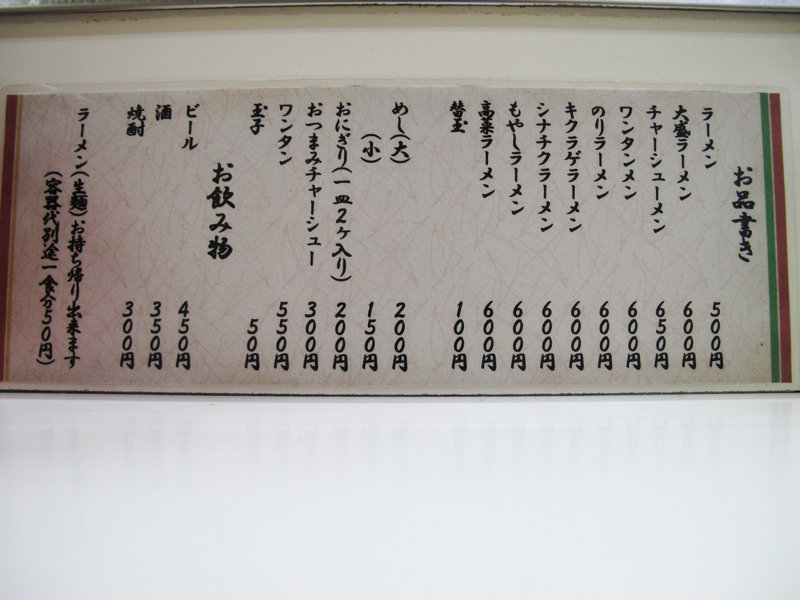 お品書き
ラーメン 500円
大盛ラーメン 600円
チャーシューメン 650円
ワンタンメン 600円
のりラーメン 600円
キクラゲラーメン 600円
シナチクラーメン 600円
もやしラーメン 600円
高菜ラーメン 600円
替玉 100円
めし(大) 200円
(小) 150円
おにぎり(一皿2ケ入り) 200円
おつまみチャーシュー 300円
ワンタン 550円
玉子 50円
お飲み物
ビール 450円
酒 350円
焼酎 300円
ラーメン(生麺)お持ち帰り出来ます
(容器代別途一食分50円)